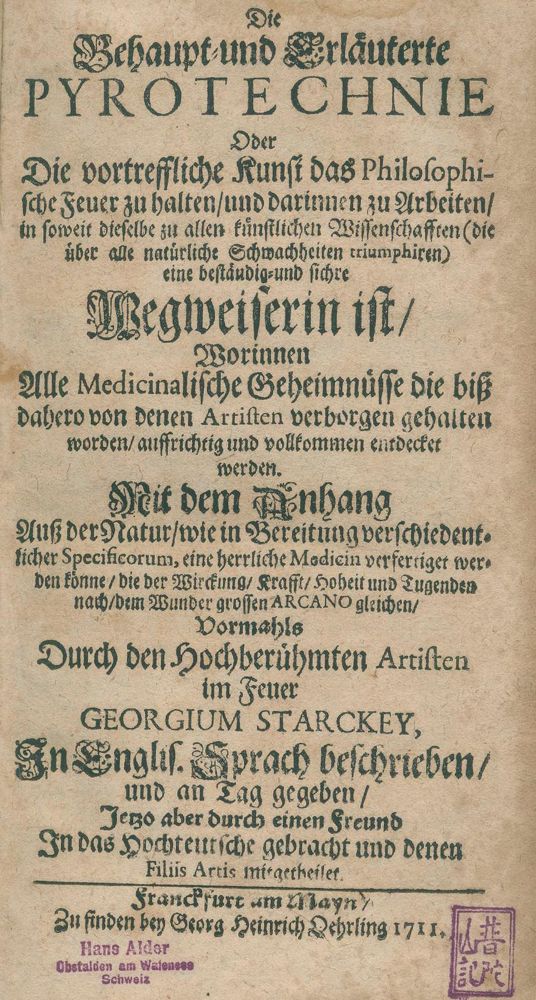 Die
Behaupt-und Erläuterte
PYROTECHNIE
Oder
Die vortreffliche Kunst das Philosophi-
sche Feuer zu halten/und darinnen zu Arbeiten/
in soweit dieselbe zu allen künstlichen Wissenschafften (die
über alle natürliche Schwachheiten triumphiren)
eine beständig-und sichre
Wegweiserin ist/
Worinnen
Alle Medicinalische Geheimnüsse die biß
dahero von denen Artisten verborgen gehalten
worden/auffrichtig und vollkommen entdecket
werden.
Mit dem Anhang
Auß der Natur/wie in Bereitung verschiedent-
licher Specificorum, eine herrliche Medicin verfertiget wer-
den könne/die der Wirckung/Krafft/Hoheit und Tugenden
nach/dem Wunder grossen ARCANO gleichen/
Vormahls
Durch den Hochberühmten Artisten
im Feuer
GEORGIUM STARCKEY,
In Englis. Sprach beschrieben/
und an Tag gegeben/
Jetzo aber durch einen Freund
In das Hochteutsche gebracht und denen
Filiis Artis mitgetheilet.
Franckfurt am Mayn/
Zu finden bey Georg Heinrich Oehrling 1711.
Hans Alder
Obstalden am Walensee
Schweiz